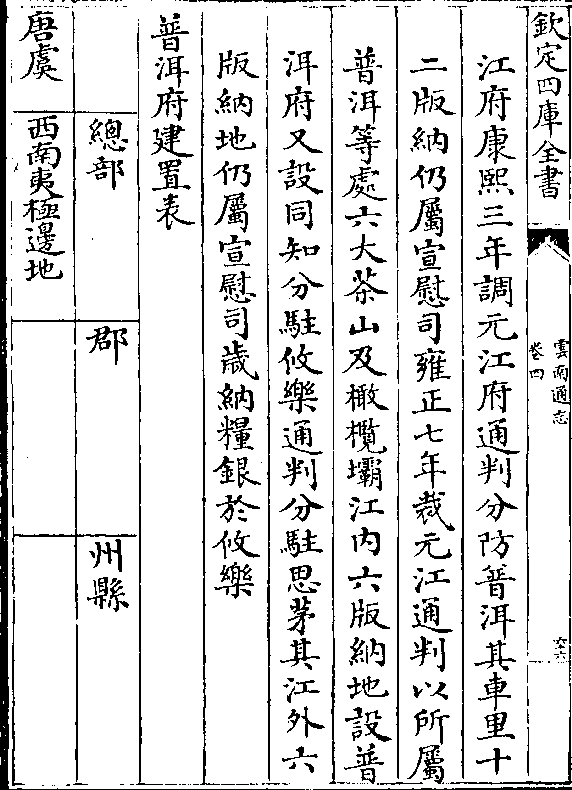 欽定四庫全書
雲南通志
卷四
六十六
江府康熙三年調元江府通判分防普洱其車里十
二版納仍屬宣慰司雍正七年裁元江通判以所屬
普洱等處六大茶山及橄欖壩江內六版納地設普
洱府又設同知分駐攸樂通判分駐思茅其江外六
版納地仍屬宣慰司歲納糧銀於攸樂
普洱府建置表
總部
郡
州縣
唐虞
西南夷極邊地